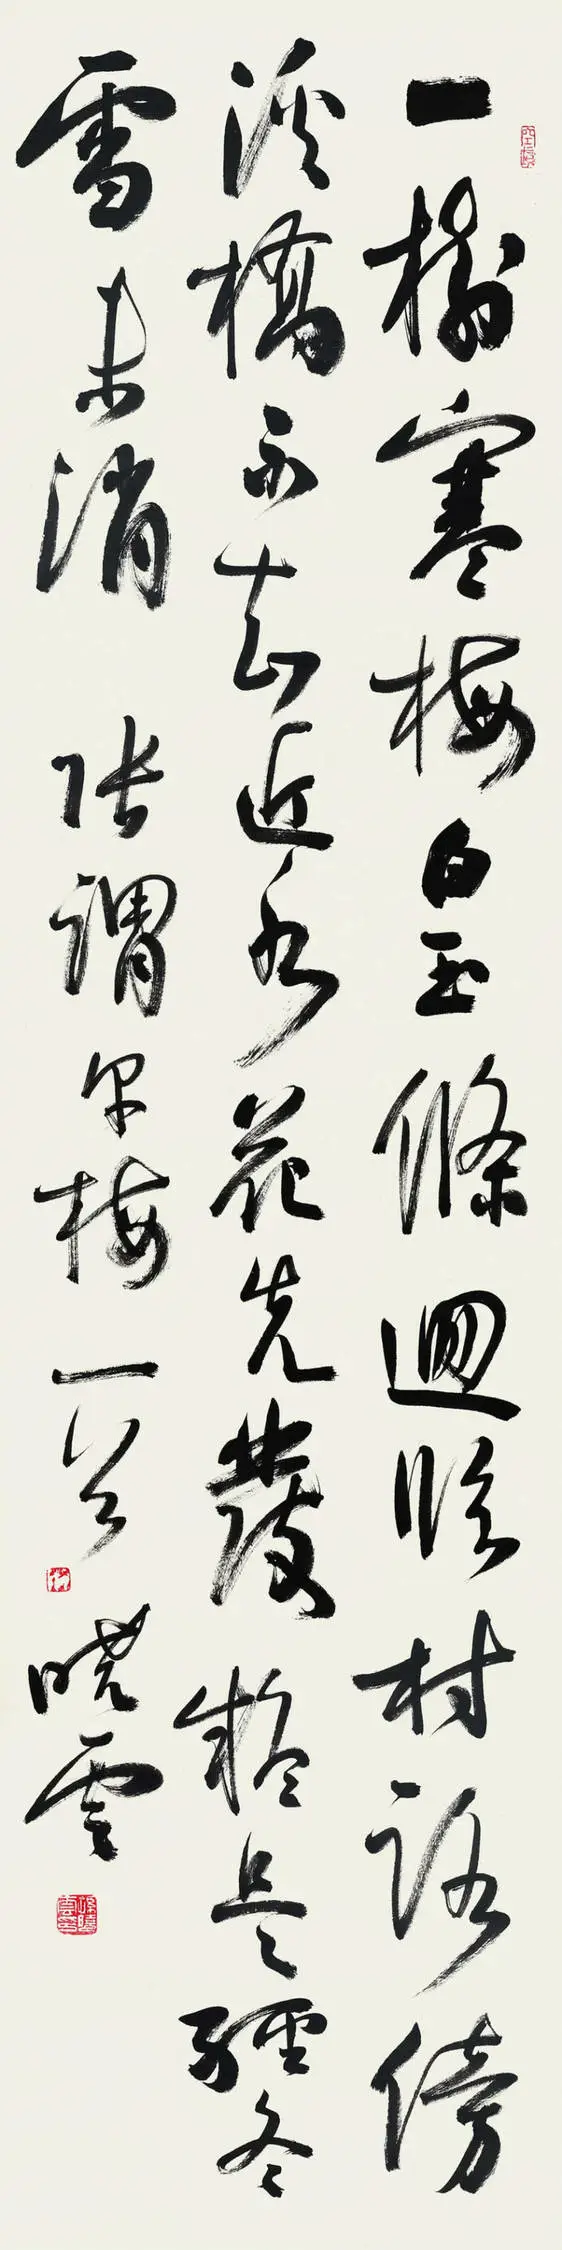 一樹寒梅白玉條迴臨村路傍
溪橋不知近水花先發疑是經冬
雪未消 張謂早梅一首 曉雲